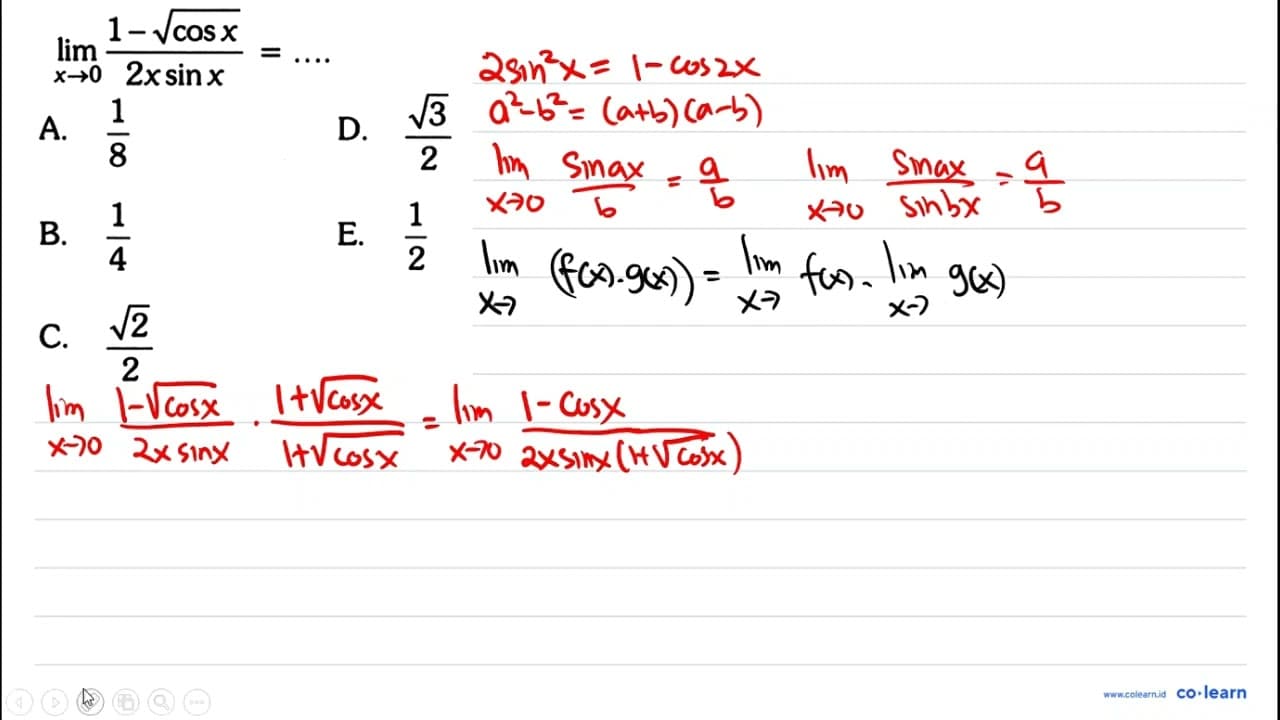 lim x→0 (1 − √cos x)/(2x sin x) = ....
A. 1/8
B. 1/4
C. √2/2
D. √3/2
E. 1/2
2sin²x = 1 − cos2x
a² − b² = (a+b)(a−b)
lim x→0 sin ax/b = a/b lim x→0 sin ax/sin bx = a/b
lim x→ (f(x).g(x)) = lim x→ f(x). lim x→ g(x)
lim x→0 (1−√cosx)/(2x sinx) . (1+√cosx)/(1+√cosx) = lim x→0 (1 − cosx)/(2x sinx(1+√cosx))
www.colearn.id co·learn